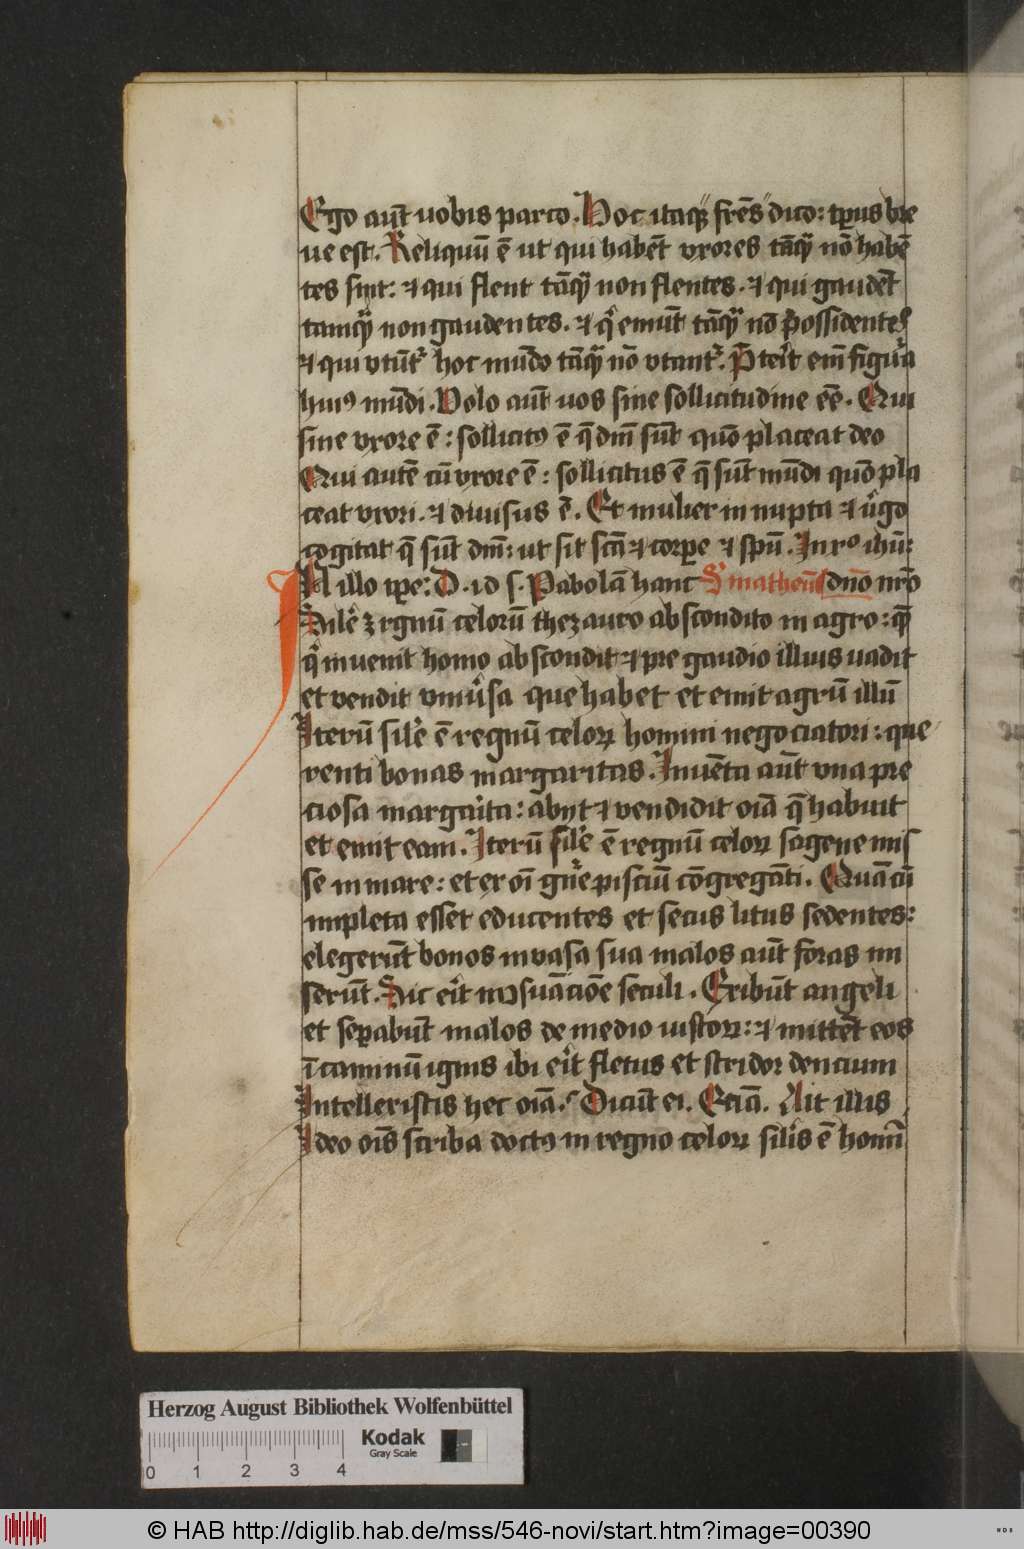 Ego aūt uobis parco. Hoc itaqꝫ fr̄es dico: tp̄us bre
ue est. Reliquū ē ut qui habēt vxores tāqͣ nō habē
tes sint: ⁊ qui flent tāqͣ non flentes. ⁊ qui gaudēt
tamqͣ non gaudentes. ⁊ qͥ emūt tāqͣ nō possidentes
⁊ qui vtūtʳ hoc mūdo tāqͣ nō vtantʳ. P̄terit em̄ figura
huiꝰ mūdi. Uolo aūt uos sine sollicitudine ēē. Qui
sine vxore ē: sollicitꝰ ē q̄ dn̄i sūt quō placeat deo
Qui autē cū vxore ē: sollicitus ē q̄ sūt mūdi quō pla
ceat vxori. ⁊ diuisus ē. Et mulier innupta ⁊ uͥgo
cogitat q̄ sūt dn̄i: ut sit scā ⁊ corꝑe ⁊ spū. In xᵒ ihū:
IN illo tꝑe: D. id s. Pabolā hanc S̄ matheū dn̄o nr̄o
Silē ꝫ rgnū celorū thezauro abscondito in agro: q̄
qͥ inuenit homo abscondit ⁊ pre gaudio illius uadit
et vendit vniūsa que habet et emit agrū illū
Iterū silē ē regnū celoꝝ homini negociatori: que
renti bonas margaritas. Inuēta aūt vna pre
ciosa margaͥta: abijt ⁊ vendidit oīa q̄ habuit
et emit eam. Iterū silē ē regnū celoꝝ sagene mis
se in mare: et ex oī gn̄e pisciū cōgregāti. Quā cū
impleta esset educentes et secus litus sedentes:
elegerūt bonos in vasa sua malos aūt foras mi
serūt. Sic eīt in ꝯsuācōe seculi. Exibūt angeli
et seꝑabūt malos de medio iustoꝝ: ⁊ mittēt eos
ī caminū ignis ibi eīt fletus et stridor dencium
Intellexistis hec oīa. Dicūt ei. Eciā. Ait illis
Ideo oīs scriba doctꝰ in regno celoꝝ silis ē homī
Herzog August Bibliothek Wolfenbüttel
Kodak
Gray Scale
0 1 2 3 4
© HAB http://diglib.hab.de/mss/546-novi/start.htm?image=00390